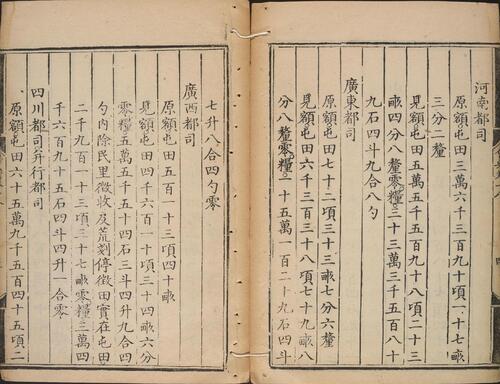 河南都司
原額屯田三萬六千三百九十項一十七畝
三分二釐
見額屯田五萬五千五百九十八項二十三
畝四分八釐零糧三十三萬三千五百八十
九石四斗九合八勺
廣東都司
原額屯田七十二項三十三畝七分六釐
見額屯田六千三百三十八項七十九畝八
分八釐零糧一十五萬一百二十九石四斗
七升八合四勺零
廣西都司
原額屯田五百一十三項四十畝
見額屯田四千六百一十項三十四畝六分
零糧五萬五千五十四石三斗四升九合四
勺內除民里徵收及荒剗停徵田實在屯田
二千九百一十三項三十七畝零糧三萬四
千六百九十五石四斗四升一合零
四川都司并行都司
原額屯田六十五萬九千五百四十五項二